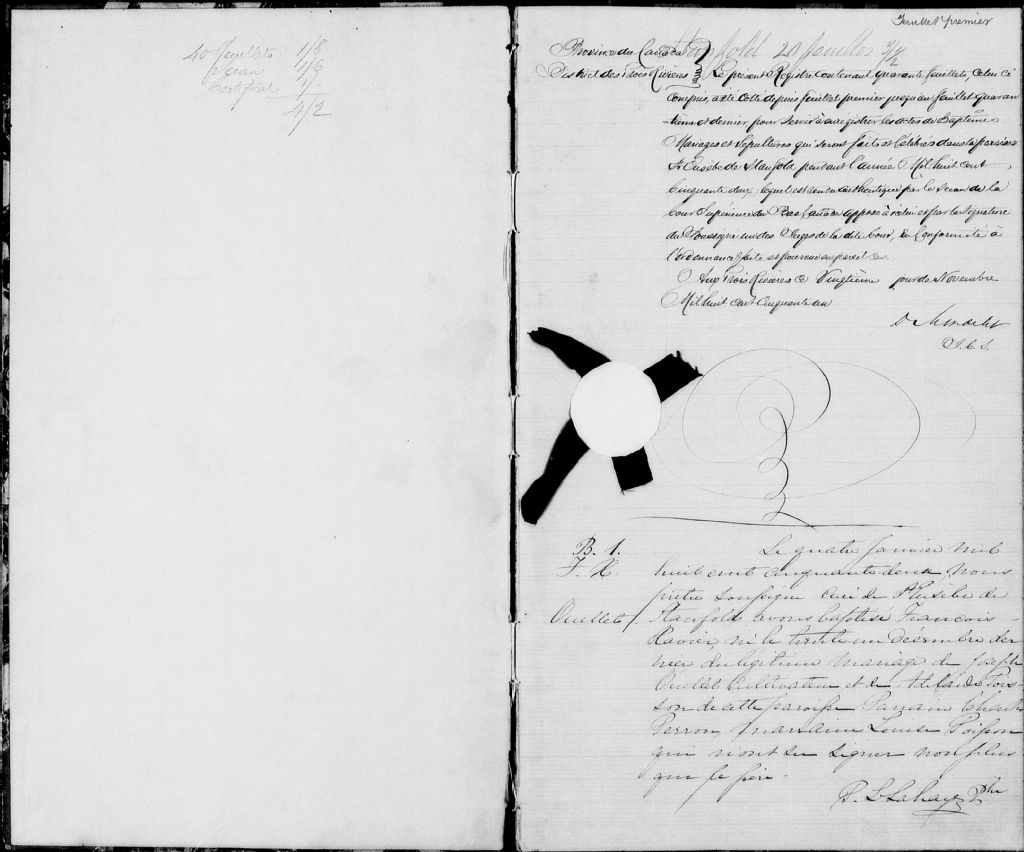 40 feuillets 1/8
Sceau 1/6
Certificat 1/
4/2
Feuillet premier
Stanfold 20 feuilles 3/4
Province du Canada
District des Trois Rivières } Le present Registre contenant quarante feuillets, Celui ci
compris, a été Cotté depuis feuillet premier jusqu'au feuillet quaran
-tième et dernier pour servir à enregistrer les actes de Baptêmes
Mariages et Sepultures qui seront faits et Célébrés dans la paroisse
St Eusèbe de Stanfold pendant l'année Mil huit cent
Cinquante deux, lequel est rendu authentique par le Sceau de la
Cour Supérieure du Bas Canada apposé à icelui et par la Signature
du Soussigné un des Juges de la dite Cour, en Conformité à
l'ordonnance faite et pourvue en pareil cas.
Aux Trois Rivières Ce Vingtième jour de Novembre
Mil huit cent Cinquante un
D Mondelet
J. C. S.
B. 1.
F. X.
Ouellet /.
Le quatre Janvier mil
huit cent cinquante deux, nous
prêtre soussigné curé de St Eusèbe de
Stanfold avons baptisé François-
Xavier, né le trente un décembre der
nier du légitime mariage de Joseph
Ouellet Cultivateur et de Adelaide Pois-
son de cette paroisse Parrain Charles
Perron, marraine Louise Poisson
qui n'ont su signer non plus
que le père.
P. L. Lahaye Ptre